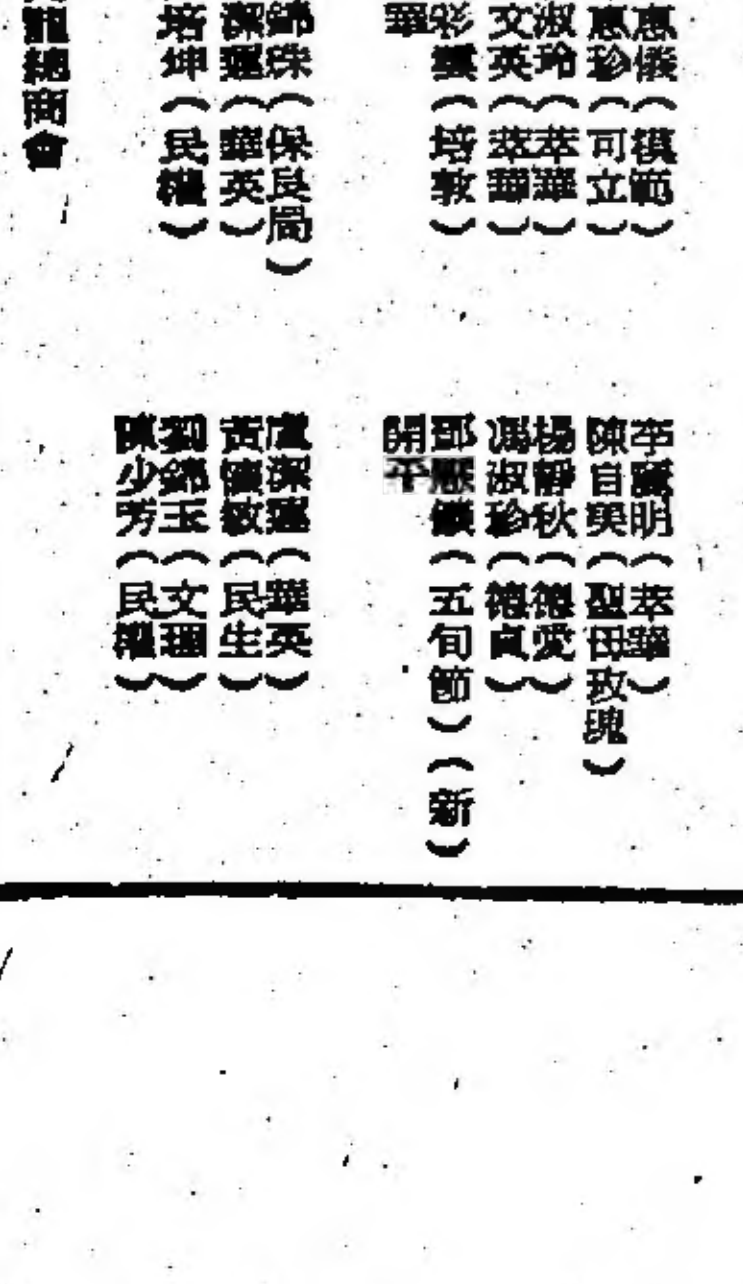 惠儀（模範）
惠珍（可立）
淑玲（萃華）
文英（萃華）
雲（培敦）
華
錦珠（保良局）
潔蓮（華英）
培坤（民權）
龍總商會
李麗明（萃華）
陳自美（聖母玫瑰）
楊靜秋（德愛）
馮淑珍（德貞）
鄧（五旬節）（新）
開平
盧潔蓮（華英）
黃懷敏（民生）
劉錦玉（文理）
陳少芳（民權）